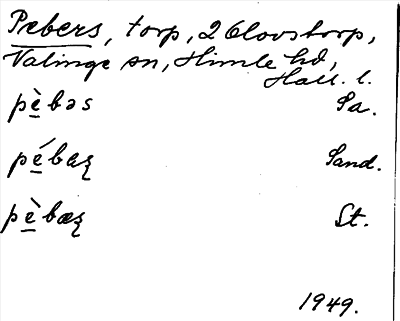 Pæbers, torp, 2 Olovstorp,
Valinge sn, Himle hd,
Hall. l.
pè̱bəs Sa.
pé̱bæʂ Sand.
pè̱bæʂ St.
1949.